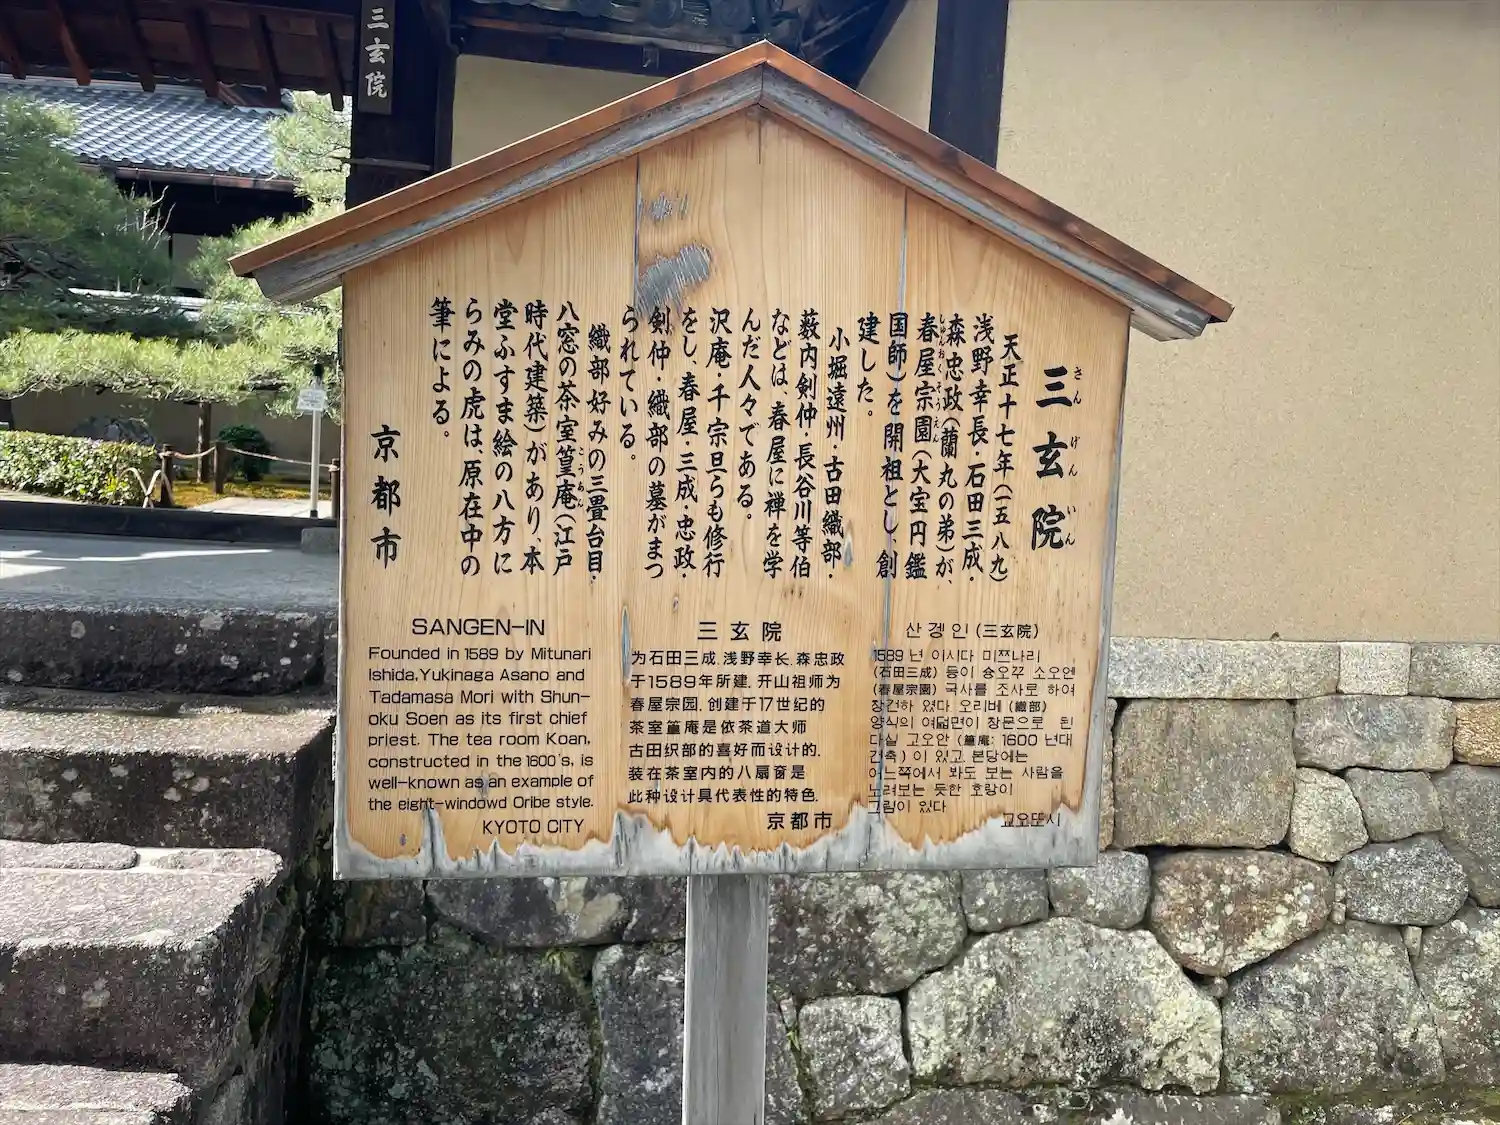 三玄院
三玄院
さんげんいん
天正十七年(一五八九)
浅野幸長・石田三成・
森忠政(蘭丸の弟)が、
春屋宗園(大宝円鑑
しゅんおくそうえん
国師)を開祖とし、創
建した。
小堀遠州・古田織部・
薮内剣仲・長谷川等伯
などは、春屋に禅を学
んだ人々である。
沢庵・千宗旦らも修行
をし、春屋・三成・忠政・
剣仲・織部の墓がまつ
られている。
織部好みの三畳台目・
八窓の茶室篁庵(江戸
こうあん
時代建築)があり、本
堂ふすま絵の八方に
らみの虎は、原在中の
筆による。
京都市
SANGEN-IN
Founded in 1589 by Mitunari
Ishida,Yukinaga Asano and
Tadamasa Mori with Shun-
oku Soen as its first chief
priest. The tea room Koan,
constructed in the 1600's, is
well-known as an example of
the eight-windowd Oribe style.
KYOTO CITY
三玄院
为石田三成.浅野幸长.森忠政
于1589年所建.开山祖师为
春屋宗园.创建于17世纪的
茶室篁庵是依茶道大师
古田织部的喜好而设计的.
装在茶室内的八扇窗是
此种设计具代表性的特色.
京都市
산겡인(三玄院)
1589년 이시다 미쯔나리
(石田三成) 등이 슝오꾸 소오엔
(春屋宗園) 국사를 조사로 하여
창건하였다 오리베(織部)
양식의 여덟면이 창문으로 된
다실 고오안(篁庵: 1600년대
건축)이 있고 본당에는
어느쪽에서 봐도 보는 사람을
노려보는 듯한 호랑이
그림이 있다
교오또시